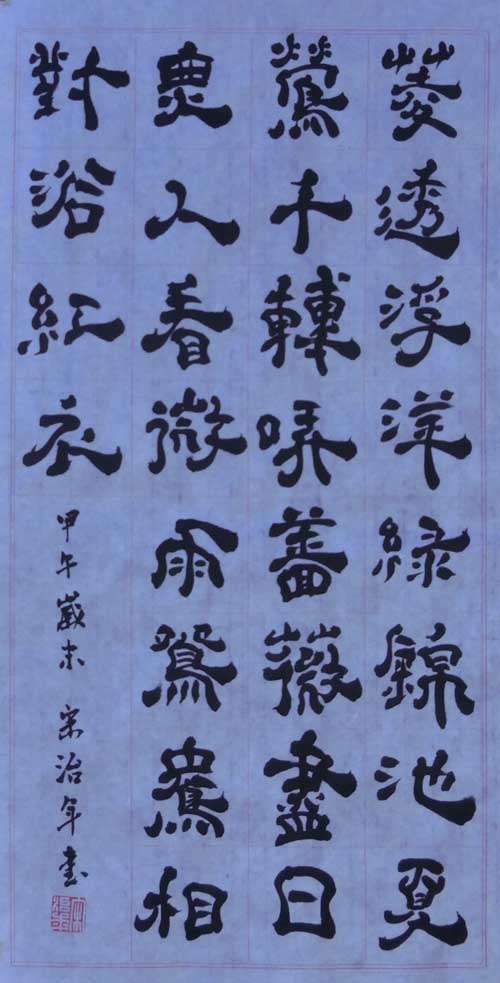 菱透浮洋綠錦池夏
鶯千轉哢薔薇盡日
無人看微雨鴛鴦相
對浴紅衣
甲午歲末 宋治年書